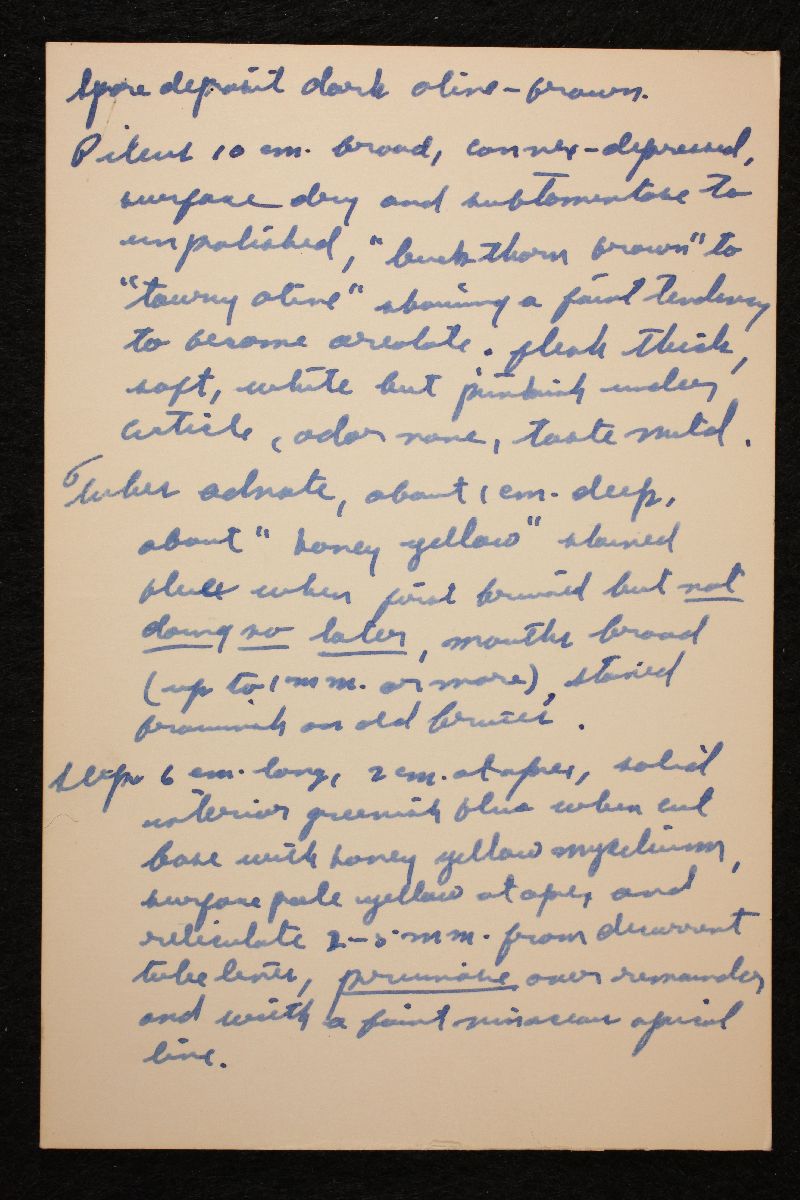 Spore deposit dark olive-brown.
Pileus 10 cm. broad, convex-depressed,
surface dry and subtomentose to
unpolished, "buckthorn brown" to
"tawny olive" showing a faint tendency
to become areolate. flesh thick,
soft, white but pinkish under
cuticle, odor none, taste mild.
Tubes adnate, about 1 cm. deep,
about "honey yellow" stained
blue when first bruised but not
doing so later, mouths broad
(up to 1 mm. or more), stained
brownish on old bruises.
Stipe 6 cm. long, 2 cm. at apex, solid
interior greenish blue when cut
base with honey yellow mycelium,
surface pale yellow at apex and
reticulate 2-5 mm. from decurrent
tube lines, pruinose over remainder
and with a faint vinaceous apical
line.